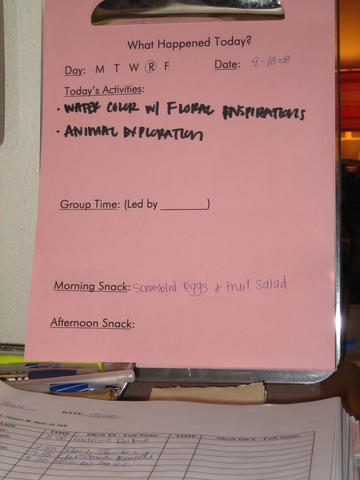 What Happened Today?
Day: M T W R F Date: 9-18-08
Today's Activities:
· WATER COLOR W/ FLORAL INSPIRATIONS
· ANIMAL EXPLORATION
Group Time: (Led by ________)
Morning Snack: Scrambled eggs & fruit salad
Afternoon Snack:
DATE
TIME SIGN IN - Full Name TIME SIGN OUT - Full Name